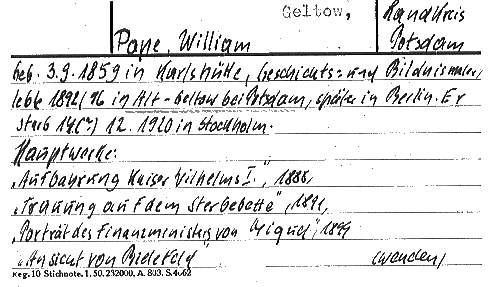 Geltow,
Landkreis
Potsdam
Pape, William
geb. 3.9.1859 in Karlshütte, Geschichts= und Bildnismaler,
lebte 1892/96 in Alt-Geltow bei Potsdam, später in Berlin. Er
starb 14(?) 12. 1920 in Stockholm.
Hauptwerke:
„Aufbahrung Kaiser Wilhelms I.", 1888,
„Trauung auf dem Sterbebette", 1891,
„Porträt des Finanzministers von Miquel", 1899
„Ansicht von Bielefeld (wenden)
Reg. 10 Stichnote. 1. 50. 232000. A. 803. S. 4.62